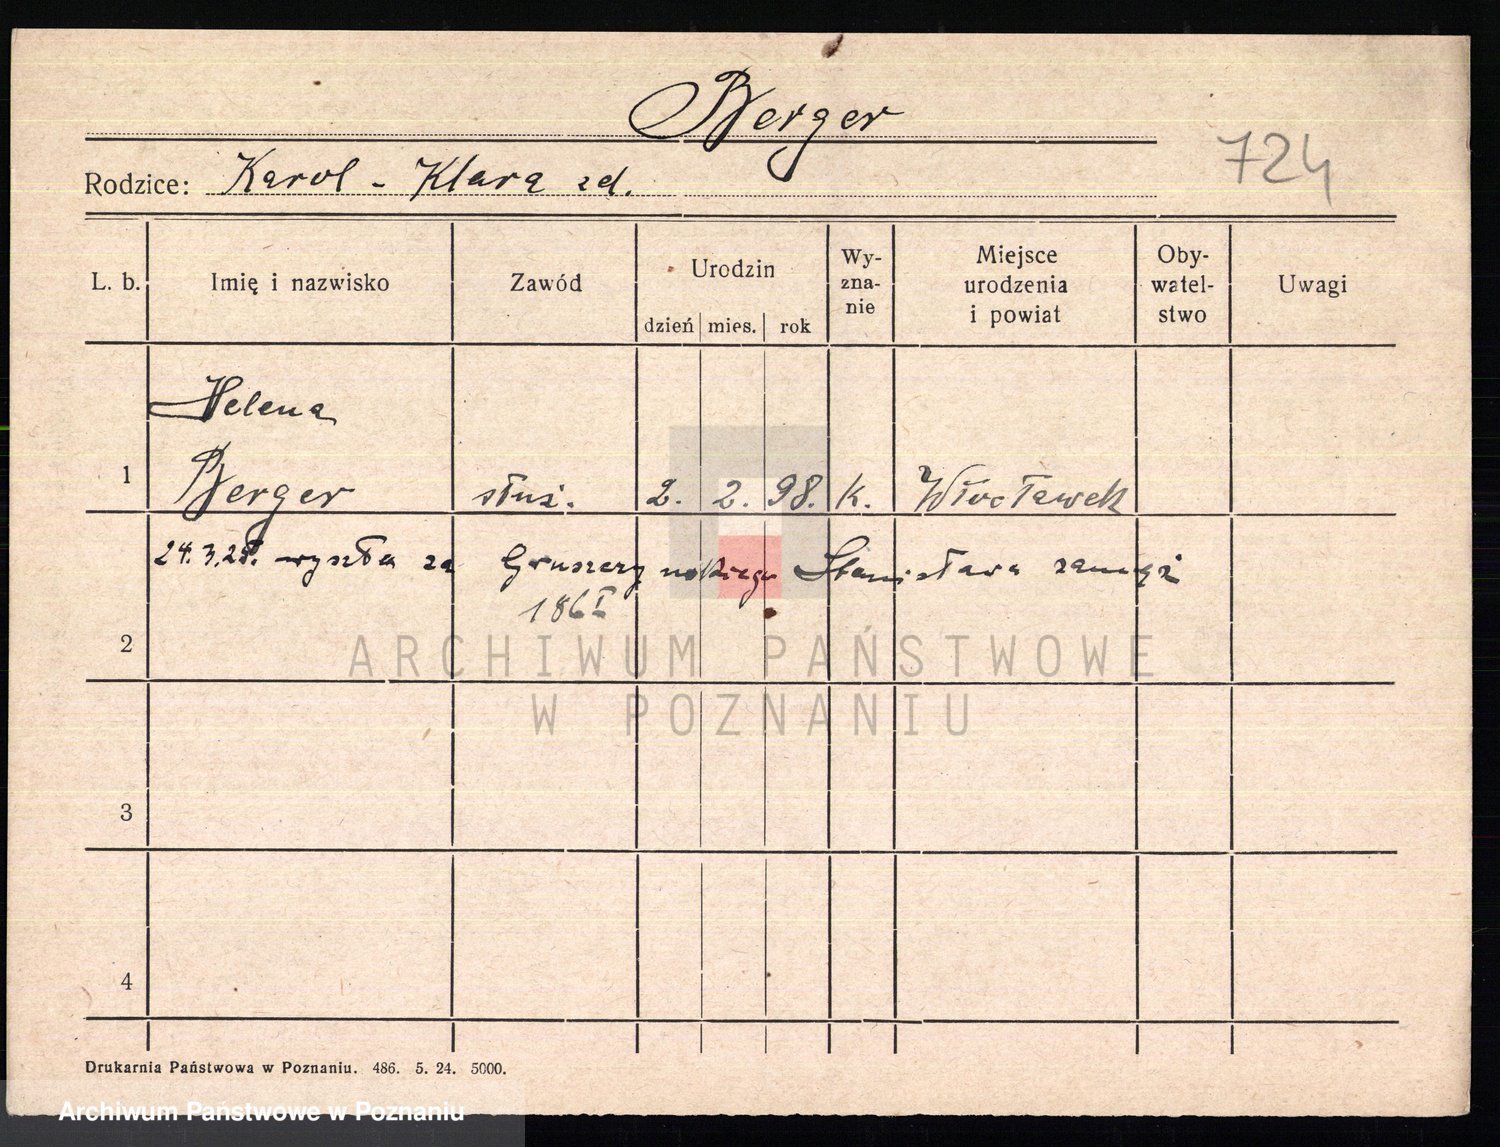 Berger
724
Rodzice: Karol - Klara zd.
L. b. Imię i nazwisko Zawód Urodzin Wy- Miejsce Oby- Uwagi
zna- urodzenia watel-
nie i powiat stwo
dzień mies. rok
Helena
1 Berger służ. 2. 2. 98. k. Włocławek
24. 3. wyszła za Gruszczyńskiego Stanisława zamąż
186 I
2
ARCHIWUM PAŃSTWOWE
W POZNANIU
3
4
Drukarnia Państwowa w Poznaniu. 486. 5. 24. 5000.
Archiwum Państwowe w Poznaniu